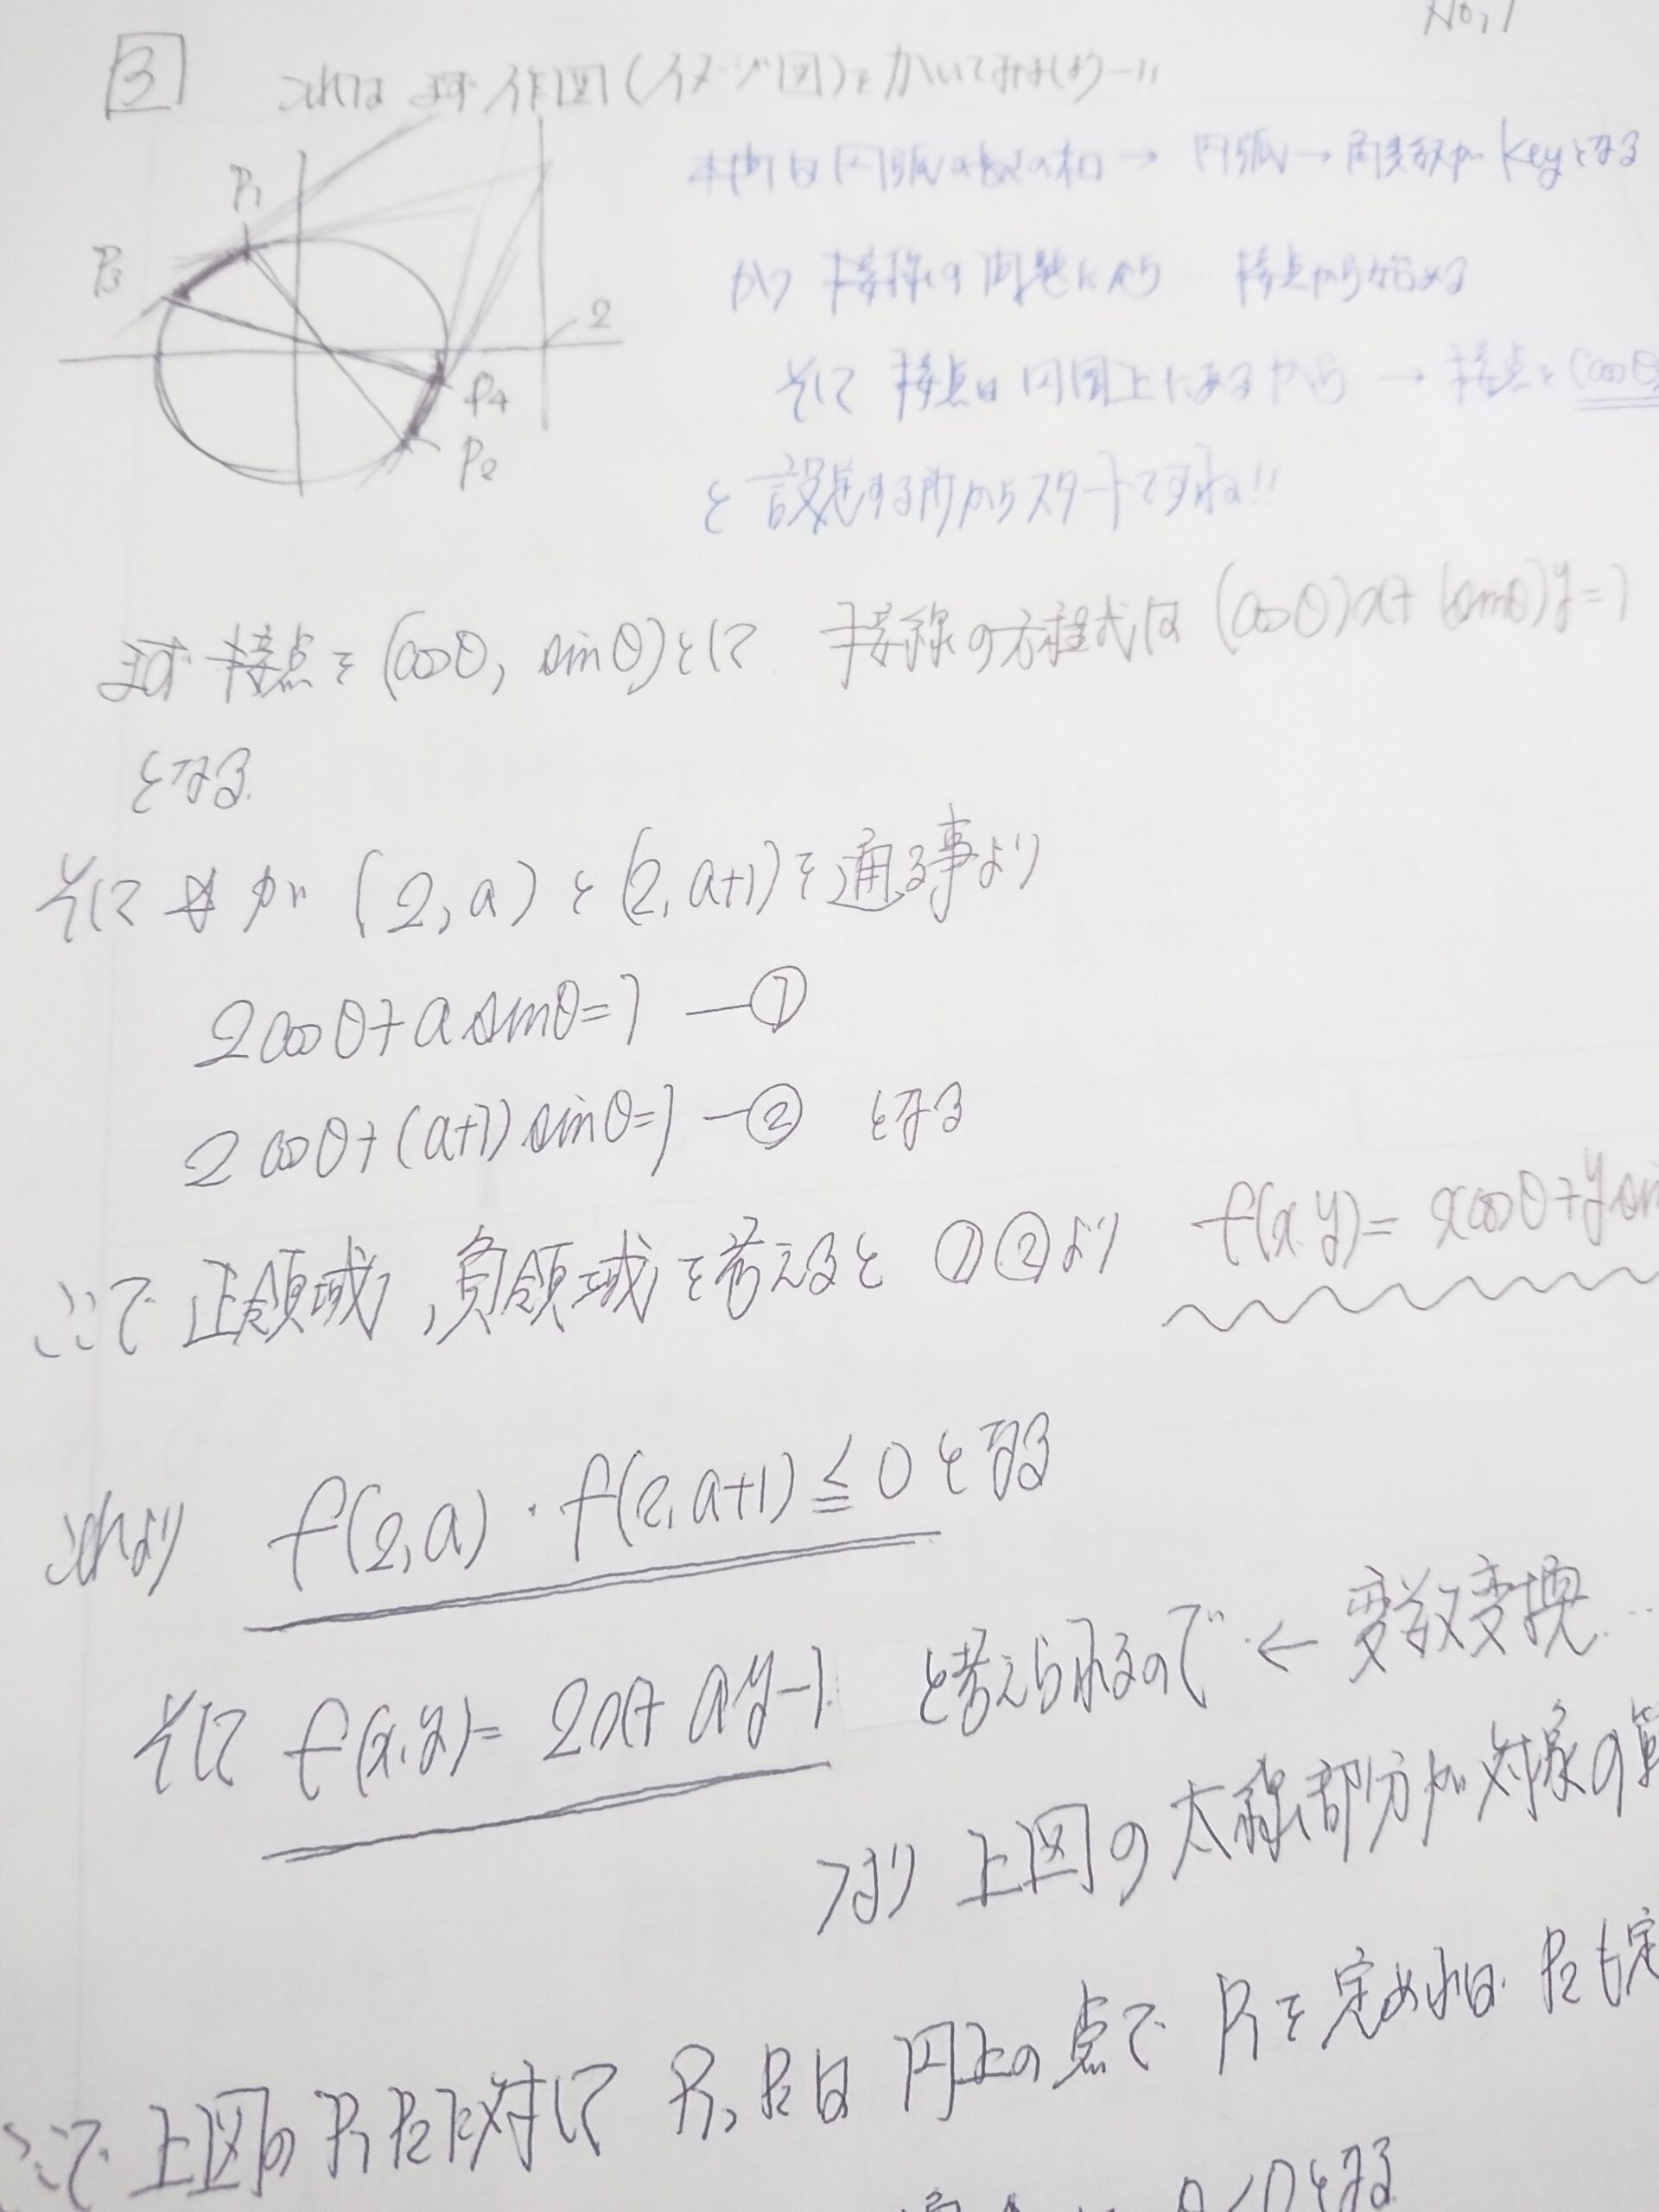 No,1
3 これは まず 作図(イメージ図)をかいてみましょうー!!
P1
P3
2
P4
P2
本問は円弧の長さの和 → 円弧 → 角度 が keyとなる
かつ 接線の問題だから 接点から始める
そして 接点は 円周上にあるから → 接点を (cosθ,
と 設定する所からスタートですね!!
まず 接点を (cosθ, sinθ)として 接線の方程式は (cosθ)x+(sinθ)y=1
となる
そして が (2,a)と(2,a+1)を通る事より
2cosθ+a sinθ=1 ―①
2cosθ+(a+1)sinθ=1 ―② となる
ここで 正領域,負領域を考えると ①②より f(x,y)= xcosθ+ysin
これより f(2,a)・f(2,a+1)≦0となる
そして f(x,y)=2x+ay-1 と考えられるので ← 変数変換
つまり 上図の太線部分が対象の
ここで 上図のP1P2に対して P1,P2は 円上の点で P1を定めれば P2も定
となる